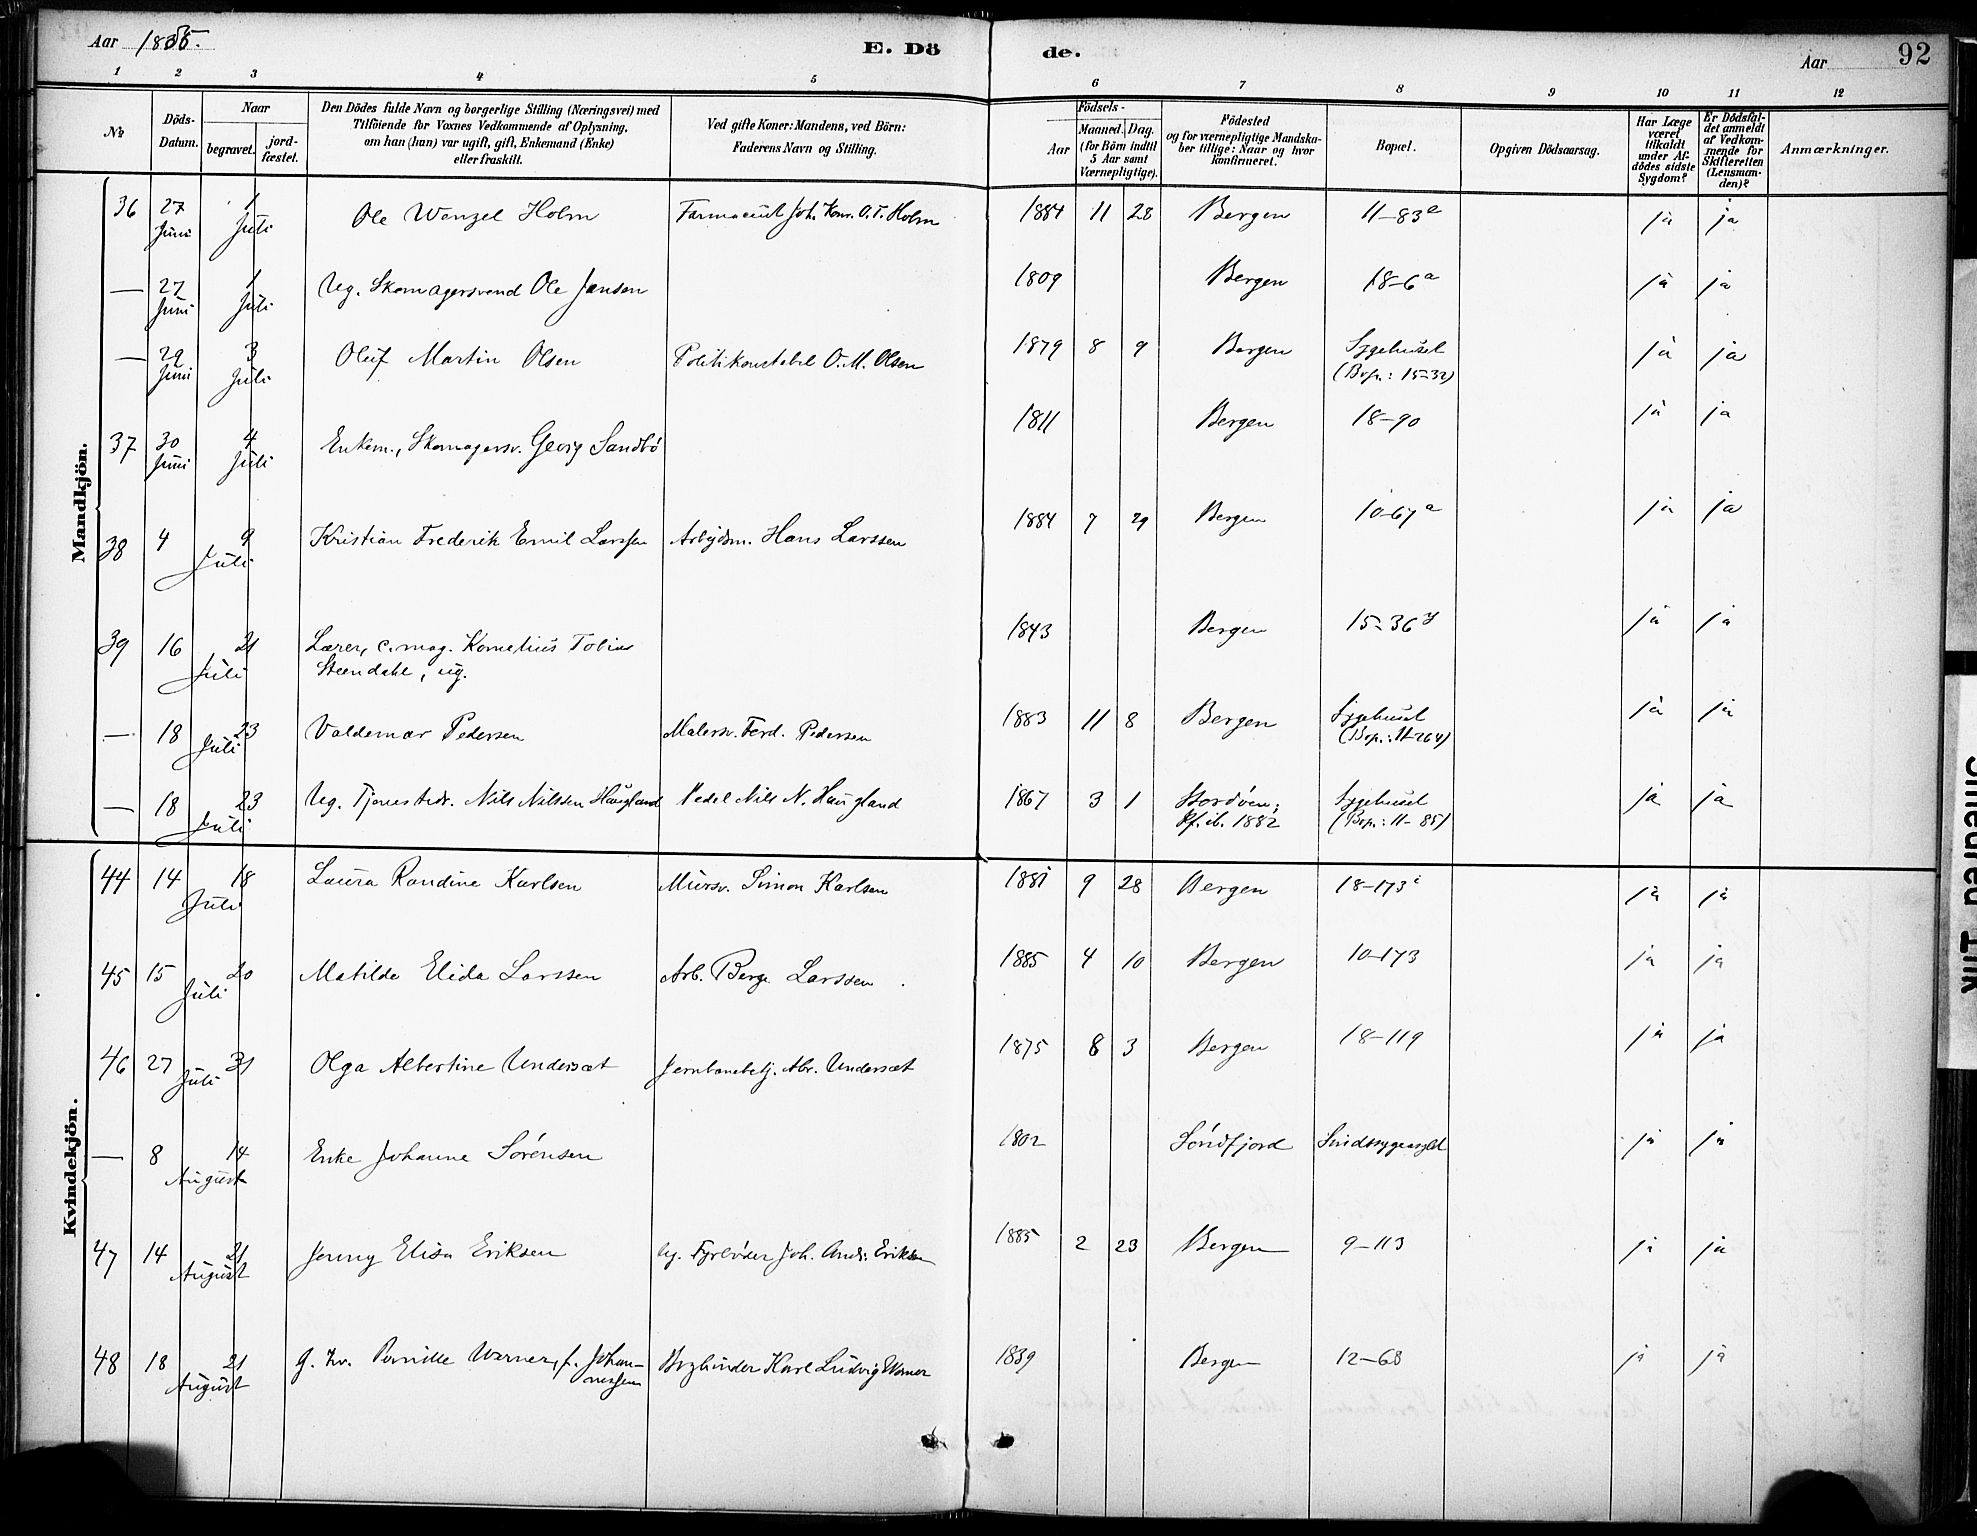 Aar 1885. E. Dö de. Aar 92
1 2 3 4 5 6 7 8 9 10 11 12
No Döds-Datum. Naar begravet. jord-fæstet. Den Dödes fulde Navn og borgerlige Stilling (Næringsvei) med Tilföiende for Voxnes Vedkommende af Oplysning, om han (hun) var ugift, gift, Enkemand (Enke) eller fraskilt. Ved gifte Koner: Mandens, ved Börn: Faderens Navn og Stilling. Aar Födsels- Maaned. Dag. (for Börn indtil 5 Aar samt Værnepligtige). Födested og for værnepligtige Mandskaber tillige: Naar og hvor konfirmeret. Bopæl. Opgiven Dödsaarsag. Har Læge været tilkaldt under Afdödes sidste Sygdom? Er Dödsfaldet anmeldt af Vedkommende for Skifteretten (Lensmanden)? Anmærkninger.
Mandkjön.
36 27 Juni 1 Juli Ole Wenzel Holm Farmaceut Joh. Konr. O. T. Holm 1884 11 28 Bergen 11-83a ja ja
— 27 Juni 1 Juli Ug. Skomagersvend Ole Jansen 1809 Bergen 18-6a ja ja
— 29 Juni 3 Juli Oluf Martin Olsen Politikonstabel O. M. Olsen 1879 8 9 Bergen Sygehuset (Bop.: 15-32) ja ja
37 30 Juni 4 Juli Enkem., Skomagersv. Georg Sandbö 1811 Bergen 18-90 ja ja
38 4 9 Juli Kristian Frederik Emil Larssen Arbejdsm. Hans Larssen 1884 7 29 Bergen 10-67a ja ja
39 16 21 Juli Lærer, c. mag. Kornelius Tobias Steendahl, ug. 1843 Bergen 15-36 ja ja
— 18 23 Juli Valdemar Pedersen Malersv. Ferd. Pedersen 1883 11 8 Bergen Sygehuset (Bop.: 11-264) ja ja
— 18 23 Juli Ug. Tjenestedr. Nils Nilssen Haugland Pedel Nils N. Haugland 1867 3 1 Stordöen; kf. ib. 1882 Sygehuset (Bop.: 11-85) ja ja
Kvindekjön.
44 14 18 Juli Laura Randine Karlsen Mursv. Simon Karlsen 1881 9 28 Bergen 18-173 ja ja
45 15 20 Juli Matilde Elida Larssen Arb. Berge Larssen 1885 4 10 Bergen 10-173 ja ja
46 27 31 Juli Olga Albertine Undersæt Jernbanebetj. Abr. Undersæt 1875 8 3 Bergen 18-119 ja ja
— 8 14 August Enke Johanne Sörensen 1802 Söndfjord Sindssygeasylet ja ja
47 14 21 August Jenny Elisa Eriksen Ug. Fyrböder Joh. Andr. Eriksen 1885 2 23 Bergen 9-113 ja ja
48 18 21 August g. Kv. Pernille Werner, f. Johannessen Bogbinder Karl Ludvig Werner 1839 Bergen 12-68 ja ja